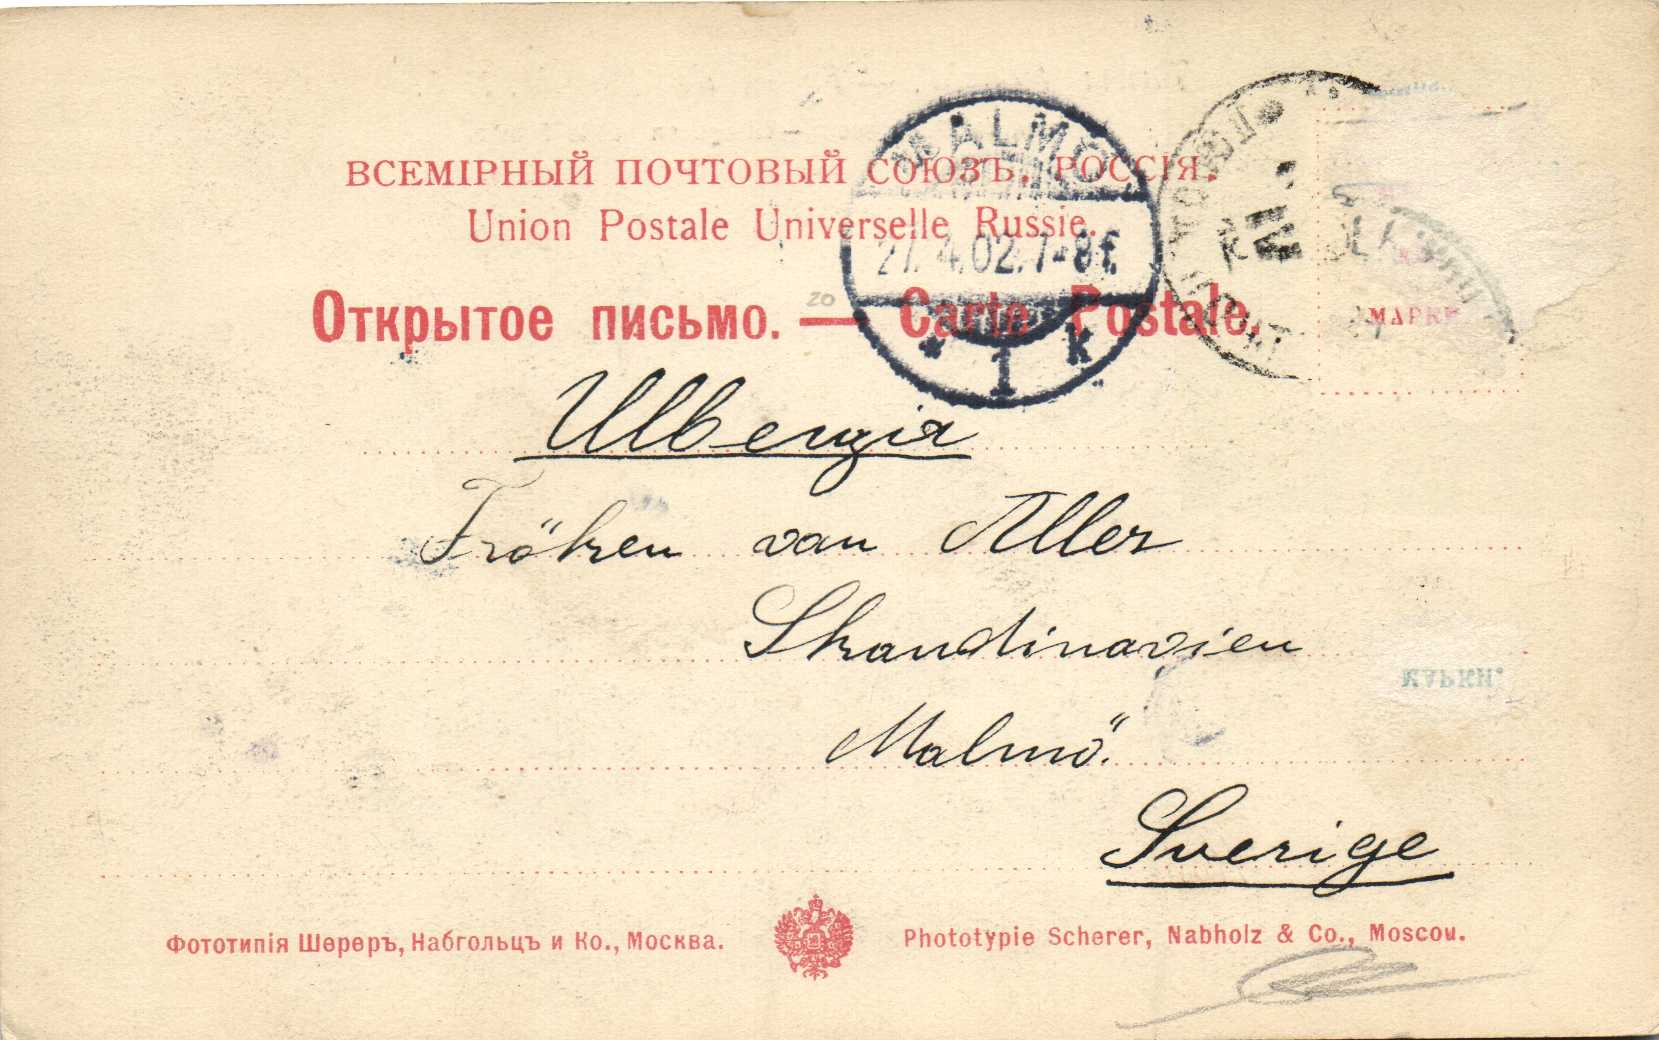 ВСЕМІРНЫЙ ПОЧТОВЫЙ СОЮЗЪ. РОССІЯ.
Union Postale Universelle Russie.
Открытое письмо. — Carte Postale.
MALMÖ
27. 4. 02. 7-8 f.
* 1 K
20
МАРКИ
Fröken van Aller
Skandinavien
МАРКИ.
Malmö.
Sverige
Фототипія Шереръ, Набгольцъ и Ко., Москва.
Phototypie Scherer, Nabholz & Co., Moscou.